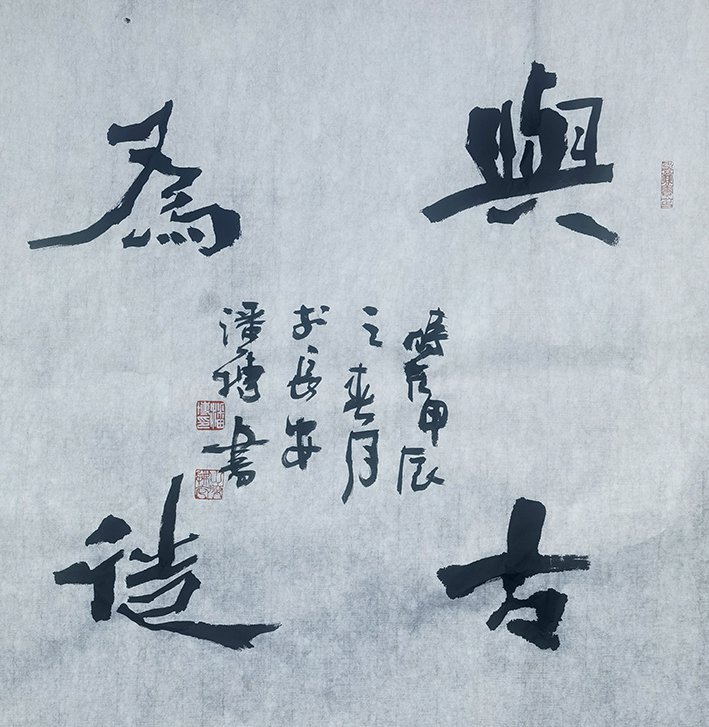 與古
為徒
時在甲辰
之春月
於長安
潘 書